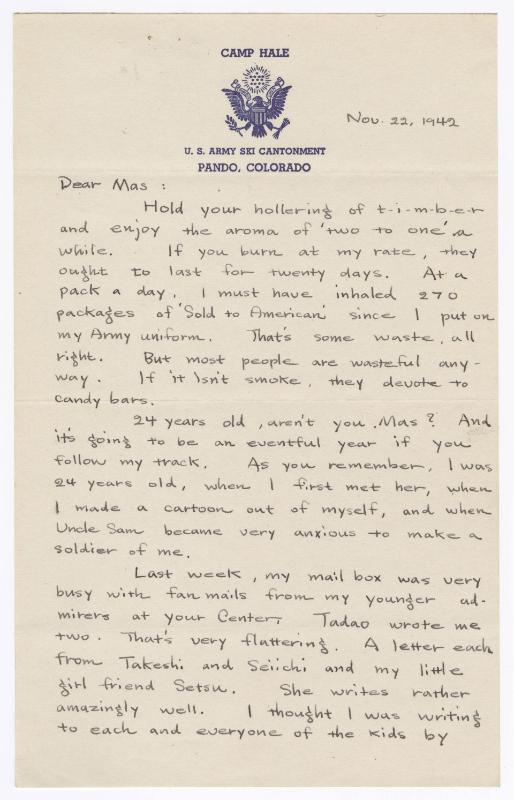 CAMP HALE
U. S. ARMY SKI CANTONMENT
PANDO, COLORADO
Nov. 22, 1942
Dear Mas :
Hold your hollering of t-i-m-b-e-r
and enjoy the aroma of 'two to one' a
while. If you burn at my rate, they
ought to last for twenty days. At a
pack a day, I must have inhaled 270
packages of 'Sold to American' since I put on
my Army uniform. That's some waste, all
right. But most people are wasteful any-
way. If it isn't smoke, they devote to
candy bars.
24 years old, aren't you, Mas? And
it's going to be an eventful year if you
follow my track. As you remember, I was
24 years old, when I first met her, when
I made a cartoon out of myself, and when
Uncle Sam became very anxious to make a
soldier of me.
Last week, my mail box was very
busy with fan mails from my younger ad-
mirers at your Center. Tadao wrote me
two. That's very flattering. A letter each
from Takeshi and Seiichi and my little
girl friend Setsu. She writes rather
amazingly well. I thought I was writing
to each and everyone of the kids by